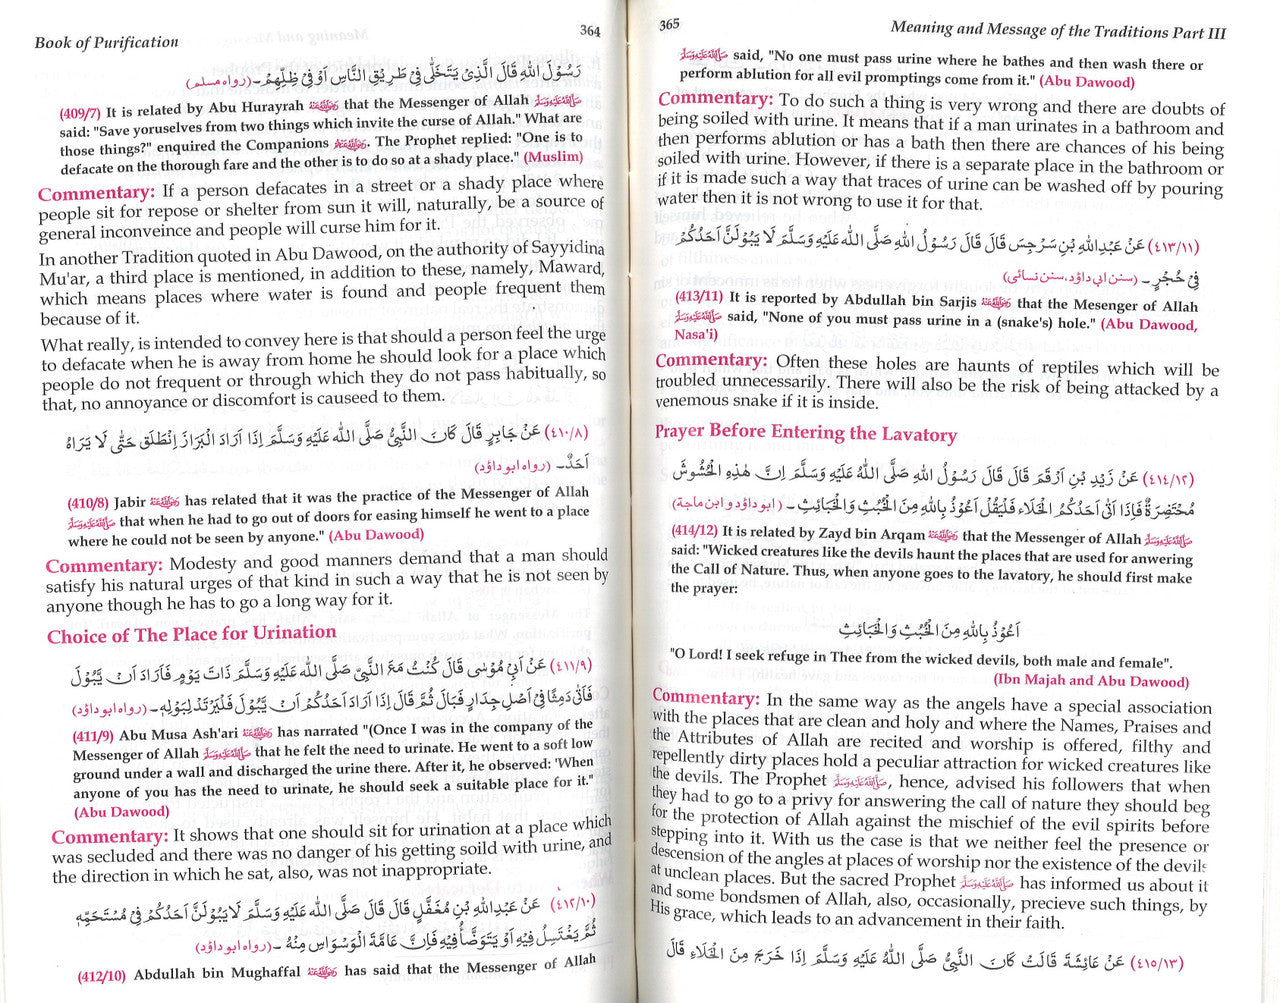 Book of Purification
364
رَسُوْلَ اللّٰهِ قَالَ الَّذِيْ يَتَخَلّٰى فِيْ طَرِيْقِ النَّاسِ اَوْ فِيْ ظِلِّهِمْ۔ (رواه مسلم)
(409/7) It is related by Abu Hurayrah رضی اللہ عنہ that the Messenger of Allah ﷺ
said: "Save yoruselves from two things which invite the curse of Allah." What are
those things?" enquired the Companions رضی اللہ عنہم. The Prophet replied: "One is to
defacate on the thorough fare and the other is to do so at a shady place." (Muslim)
Commentary: If a person defacates in a street or a shady place where
people sit for repose or shelter from sun it will, naturally, be a source of
general inconveince and people will curse him for it.
In another Tradition quoted in Abu Dawood, on the authority of Sayyidina
Mu'ar, a third place is mentioned, in addition to these, namely, Maward,
which means places where water is found and people frequent them
because of it.
What really, is intended to convey here is that should a person feel the urge
to defacate when he is away from home he should look for a place which
people do not frequent or through which they do not pass habitually, so
that, no annoyance or discomfort is causeed to them.
(٤١٠/٨) عَنْ جَابِرٍ قَالَ كَانَ النَّبِيُّ صَلَّى اللّٰهُ عَلَيْهِ وَسَلَّمَ اِذَا اَرَادَ الْبَرَازَ اِنْطَلَقَ حَتّٰى لَا يَرَاهُ
اَحَدٌ۔ (رواه ابو داؤد)
(410/8) Jabir رضی اللہ عنہ has related that it was the practice of the Messenger of Allah
ﷺ that when he had to go out of doors for easing himself he went to a place
where he could not be seen by anyone." (Abu Dawood)
Commentary: Modesty and good manners demand that a man should
satisfy his natural urges of that kind in such a way that he is not seen by
anyone though he has to go a long way for it.
Choice of The Place for Urination
(٤١١/٩) عَنْ اَبِيْ مُوْسٰى قَالَ كُنْتُ مَعَ النَّبِيِّ صَلَّى اللّٰهُ عَلَيْهِ وَسَلَّمَ ذَاتَ يَوْمٍ فَاَرَادَ اَنْ يَّبُوْلَ
فَاَتٰى دَمِثًا فِيْ اَصْلِ جِدَارٍ فَبَالَ ثُمَّ قَالَ اِذَا اَرَادَ اَحَدُكُمْ اَنْ يَّبُوْلَ فَلْيَرْتَدْ لِبَوْلِهٖ۔ (رواه ابو داؤد)
(411/9) Abu Musa Ash'ari رضی اللہ عنہ has narrated "(Once I was in the company of the
Messenger of Allah ﷺ that he felt the need to urinate. He went to a soft low
ground under a wall and discharged the urine there. After it, he observed: 'When
anyone of you has the need to urinate, he should seek a suitable place for it."
(Abu Dawood)
Commentary: It shows that one should sit for urination at a place which
was secluded and there was no danger of his getting soild with urine, and
the direction in which he sat, also, was not inappropriate.
(٤١٢/١٠) عَنْ عَبْدِاللّٰهِ بْنِ مُغَفَّلٍ قَالَ قَالَ صَلَّى اللّٰهُ عَلَيْهِ وَسَلَّمَ لَا يَبُوْلَنَّ اَحَدُكُمْ فِيْ مُسْتَحَمِّهٖ
ثُمَّ يَغْتَسِلُ فِيْهِ اَوْ يَتَوَضَّأُ فِيْهِ فَاِنَّ عَامَّةَ الْوَسْوَاسِ مِنْهُ۔ (رواه ابو داؤد)
(412/10) Abdullah bin Mughaffal رضی اللہ عنہ has said that the Messenger of Allah
365
Meaning and Message of the Traditions Part III
ﷺ said, "No one must pass urine where he bathes and then wash there or
perform ablution for all evil promptings come from it." (Abu Dawood)
Commentary: To do such a thing is very wrong and there are doubts of
being soiled with urine. It means that if a man urinates in a bathroom and
then performs ablution or has a bath then there are chances of his being
soiled with urine. However, if there is a separate place in the bathroom or
if it is made such a way that traces of urine can be washed off by pouring
water then it is not wrong to use it for that.
(٤١٣/١١) عَنْ عَبْدِاللّٰهِ بْنِ سَرْجِسَ قَالَ قَالَ رَسُوْلُ اللّٰهِ صَلَّى اللّٰهُ عَلَيْهِ وَسَلَّمَ لَا يَبُوْلَنَّ اَحَدُكُمْ
فِيْ حُجْرٍ۔ (سنن ابی داؤد، سنن نسائی)
(413/11) It is reported by Abdullah bin Sarjis رضی اللہ عنہ that the Mesenger of Allah
ﷺ said, "None of you must pass urine in a (snake's) hole." (Abu Dawood,
Nasa'i)
Commentary: Often these holes are haunts of reptiles which will be
troubled unnecessarily. There will also be the risk of being attacked by a
venemous snake if it is inside.
Prayer Before Entering the Lavatory
(٤١٤/١٢) عَنْ زَيْدِ بْنِ اَرْقَمَ قَالَ قَالَ رَسُوْلُ اللّٰهِ صَلَّى اللّٰهُ عَلَيْهِ وَسَلَّمَ اِنَّ هٰذِهِ الْحُشُوْشَ
مُحْتَضَرَةٌ فَاِذَا اَتٰى اَحَدُكُمُ الْخَلَاءَ فَلْيَقُلْ اَعُوْذُ بِاللّٰهِ مِنَ الْخُبُثِ وَالْخَبَائِثِ۔ (ابو داؤد و ابن ماجة)
(414/12) It is related by Zayd bin Arqam رضی اللہ عنہ that the Messenger of Allah ﷺ
said: "Wicked creatures like the devils haunt the places that are used for anwering
the Call of Nature. Thus, when anyone goes to the lavatory, he should first make
the prayer:
اَعُوْذُ بِاللّٰهِ مِنَ الْخُبُثِ وَالْخَبَائِثِ
"O Lord! I seek refuge in Thee from the wicked devils, both male and female".
(Ibn Majah and Abu Dawood)
Commentary: In the same way as the angels have a special association
with the places that are clean and holy and where the Names, Praises and
the Attributes of Allah are recited and worship is offered, filthy and
repellently dirty places hold a peculiar attraction for wicked creatures like
the devils. The Prophet ﷺ, hence, advised his followers that when
they had to go to a privy for answering the call of nature they should beg
for the protection of Allah against the mischief of the evil spirits before
stepping into it. With us the case is that we neither feel the presence or
descension of the angles at places of worship nor the existence of the devils
at unclean places. But the sacred Prophet ﷺ has informed us about it
and some bondsmen of Allah, also, occasionally, precieve such things, by
His grace, which leads to an advancement in their faith.
(٤١٥/١٣) عَنْ عَائِشَةَ قَالَتْ كَانَ النَّبِيُّ صَلَّى اللّٰهُ عَلَيْهِ وَسَلَّمَ اِذَا خَرَجَ مِنَ الْخَلَاءِ قَالَ